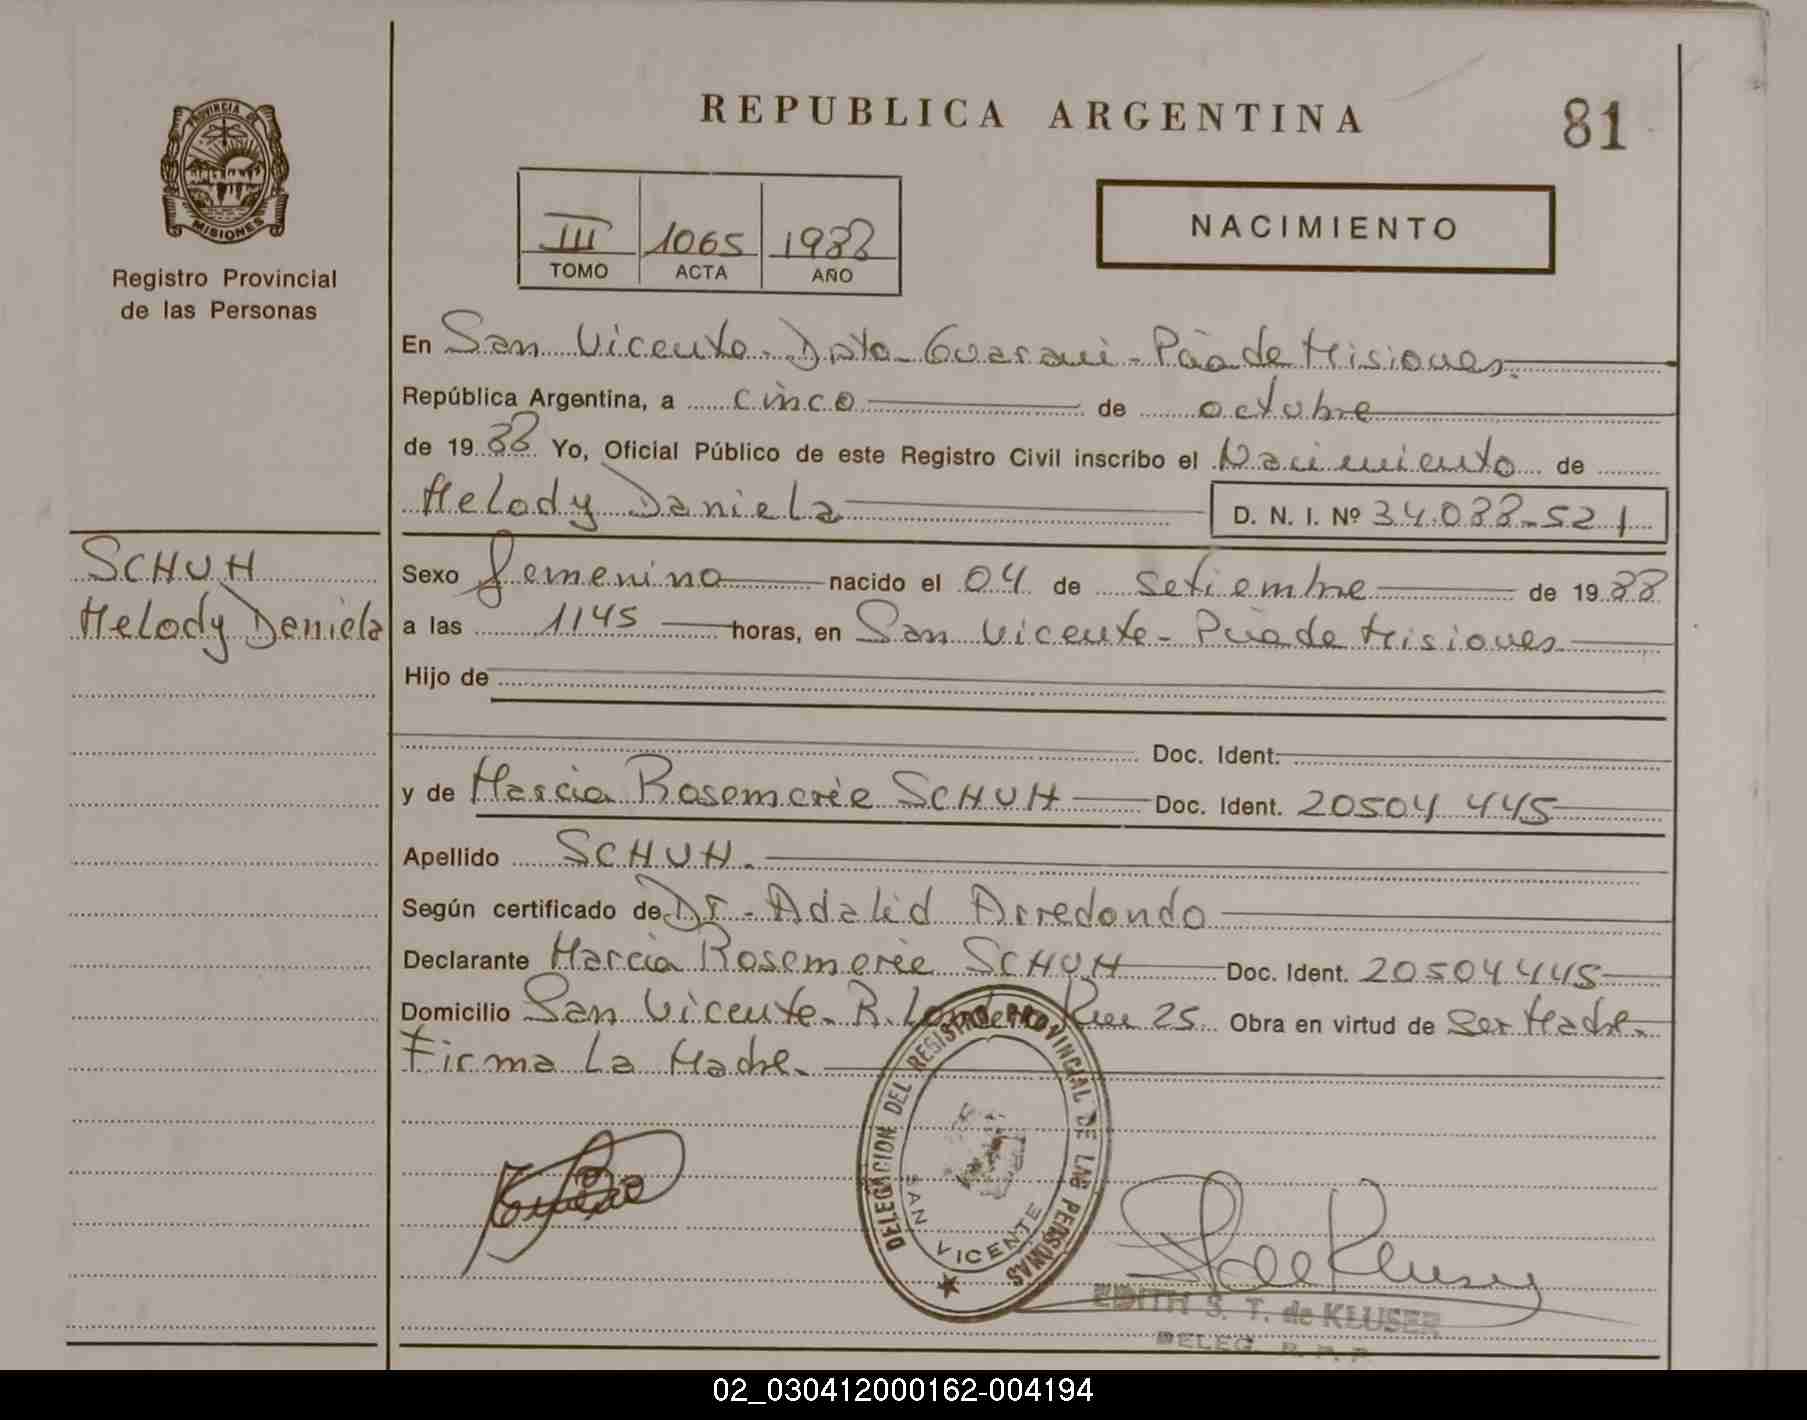 REPUBLICA ARGENTINA
81
PROVINCIA DE
MISIONES
Registro Provincial
de las Personas
III 1065 1988
TOMO ACTA AÑO
NACIMIENTO
En San Vicente. Dpto. Guarani - Pcia de Misiones.
República Argentina, a cinco de octubre
de 1988 Yo, Oficial Público de este Registro Civil inscribo el Nacimiento de
Melody Daniela D. N. I. Nº 34.088-521
SCHUH
Melody Daniela
Sexo femenino nacido el 04 de setiembre de 1988
a las 1145 horas, en San Vicente - Pcia de Misiones
Hijo de
Doc. Ident.
y de Marcia Rosemerie SCHUH Doc. Ident. 20504445
Apellido SCHUH.
Según certificado de Dr. Adalid Arredondo
Declarante Marcia Rosemerie SCHUH Doc. Ident. 20504445
Domicilio San Vicente. R. 25 Obra en virtud de Ser Madre.
Firma La Madre.
DELEGACION DEL REGISTRO PROVINCIAL DE LAS PERSONAS
SAN VICENTE
EDITH S. T. de KLUSER
DELEG. R. P. P.
02_030412000162-004194